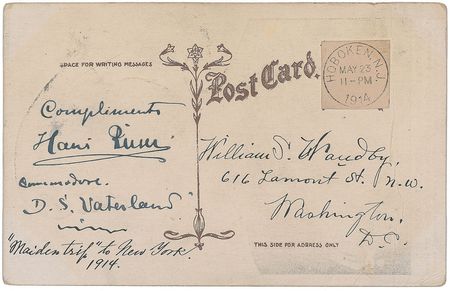 SPACE FOR WRITING MESSAGES
Post Card.
HOBOKEN, N.J.
MAY 23
11-PM
1914
Compliments
Hans
Commodore.
D. S. Vaterland
"Maiden trip" to New York.
1914.
William S.
616 Lamont St. N.W.
Washington,
D.C.
THIS SIDE FOR ADDRESS ONLY